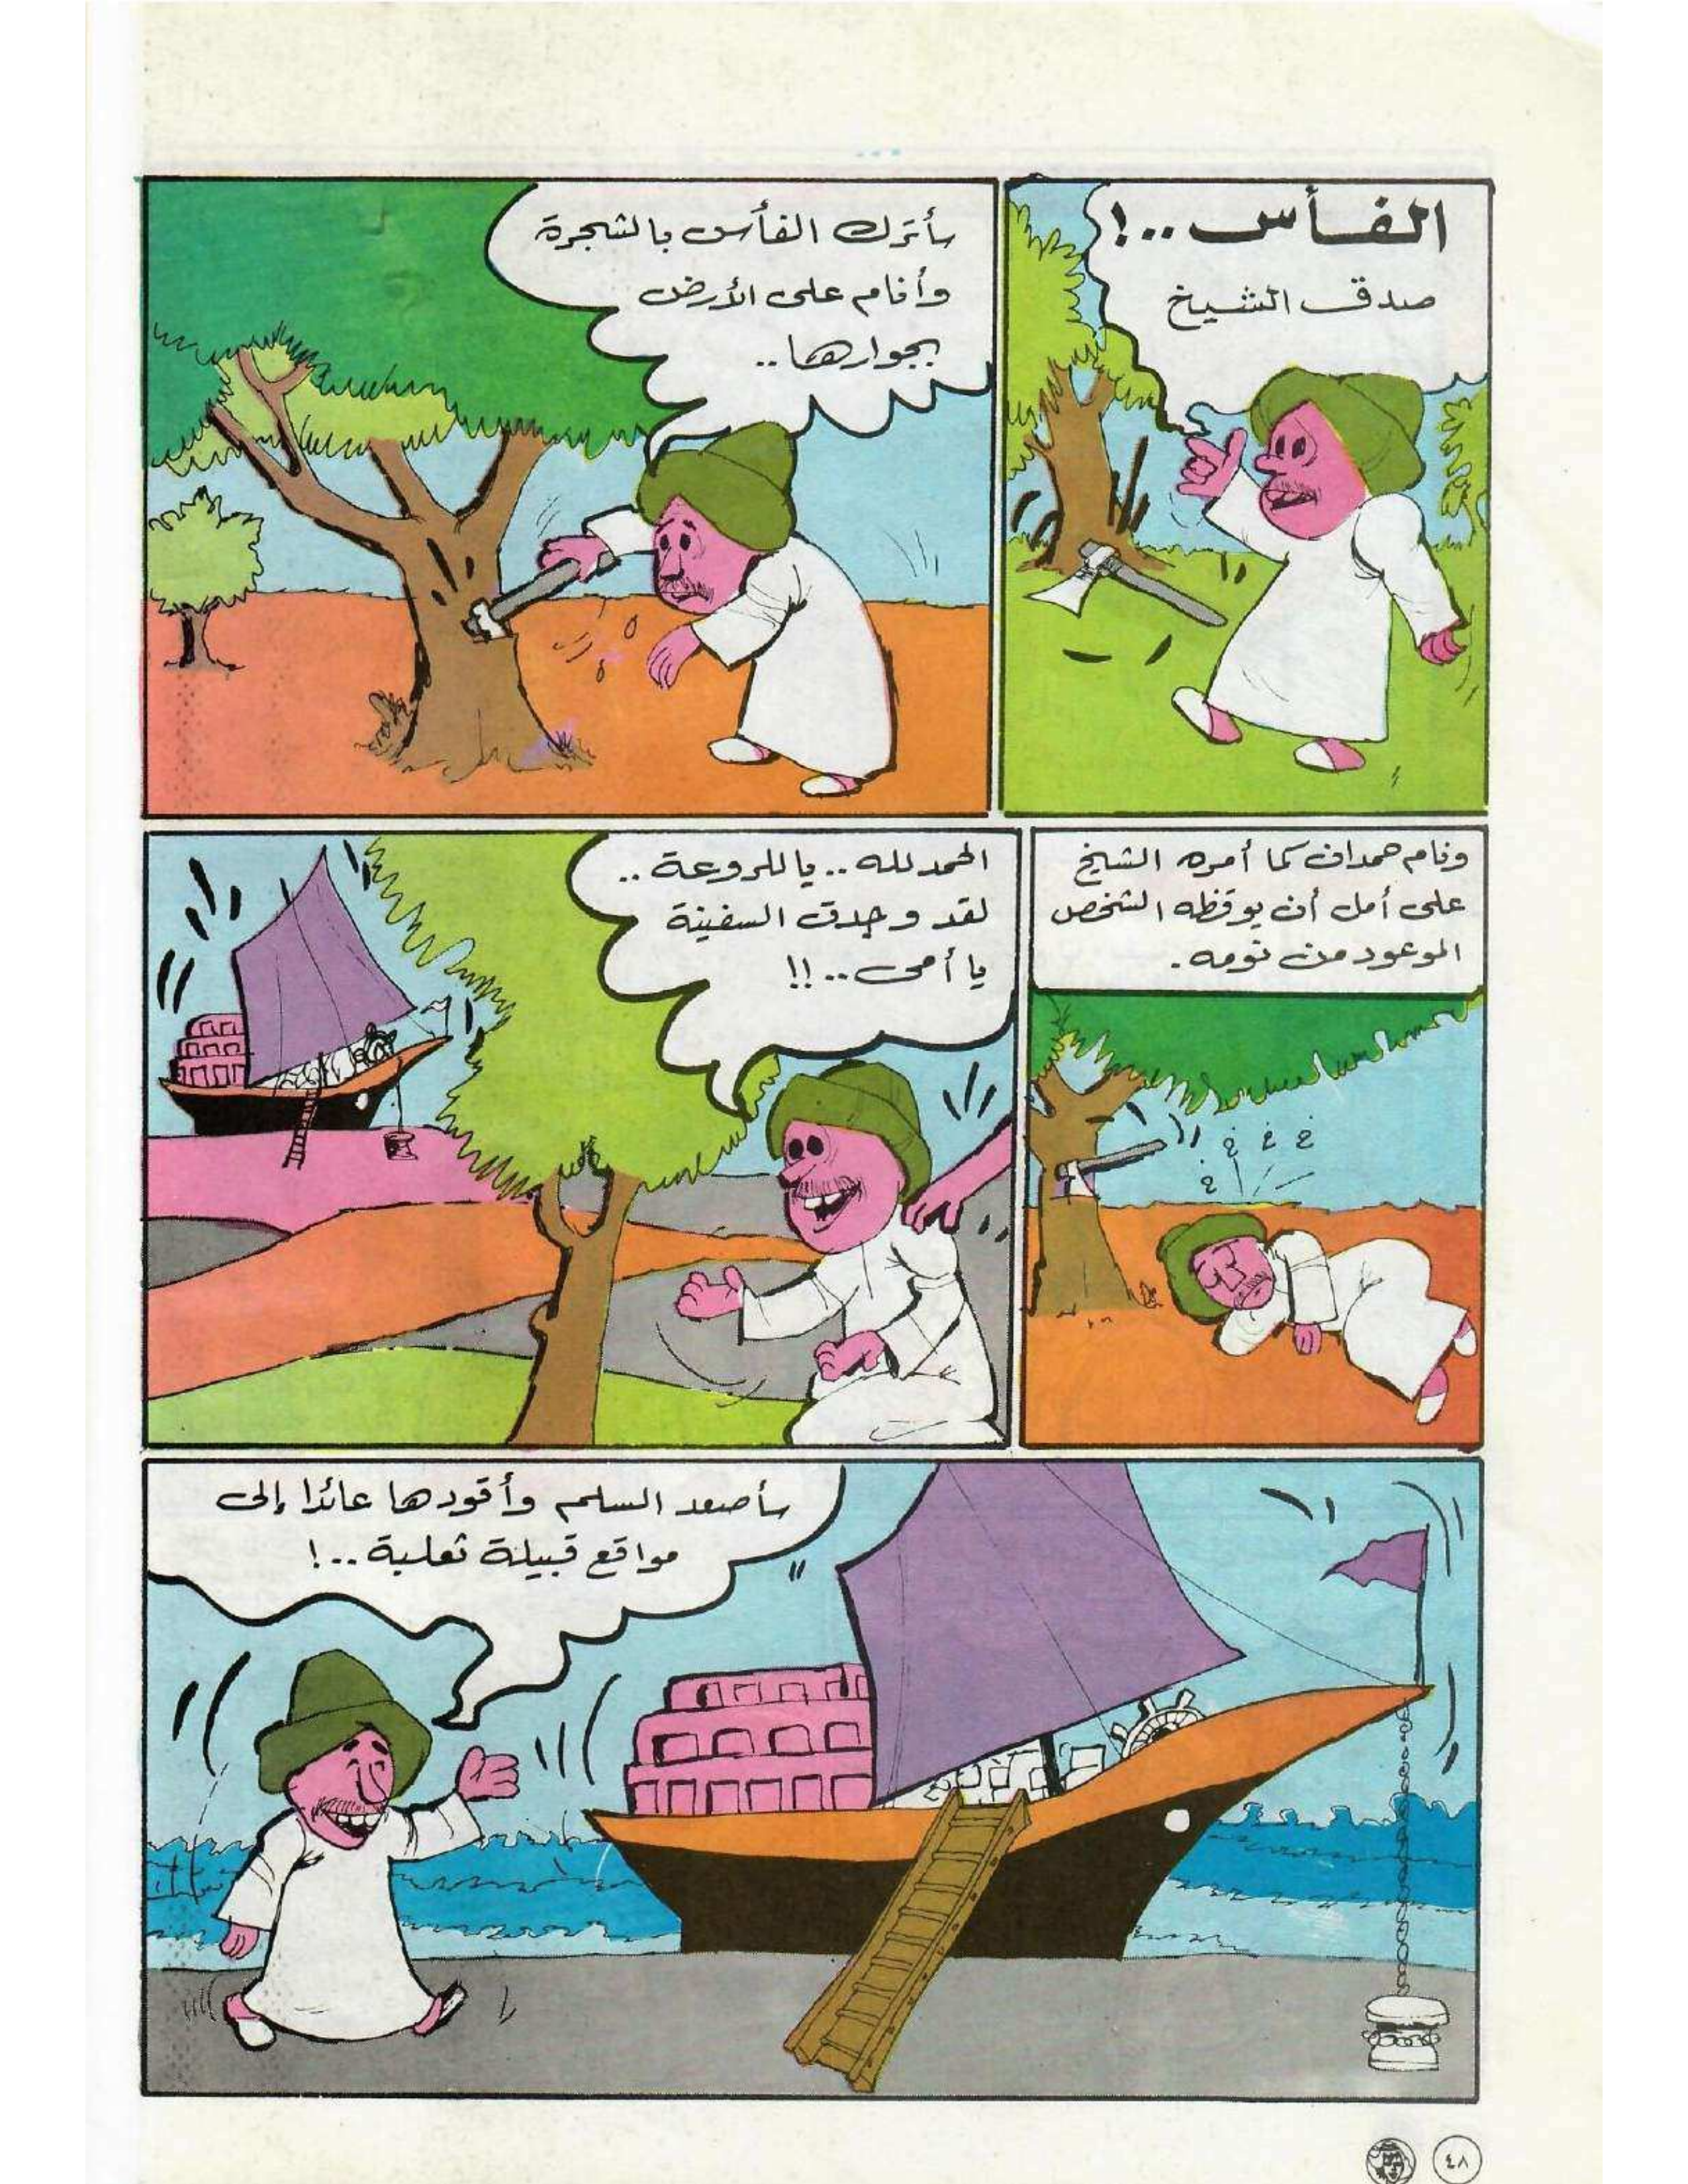 الفأس..!
صدق الشيخ
سأترك الفأس بالشجرة
وأنام على الأرض
بجوارها..
ونام حمدان كما أمره الشيخ
على أمل أن يوقظه الشخص
الموعود من نومه.
الحمد لله.. يا للروعة..
لقد وجدت السفينة
يا أمى..!!
سأصعد السلم وأقودها عائدا إلى
مواقع قبيلة ثعلبة..!
٤٨